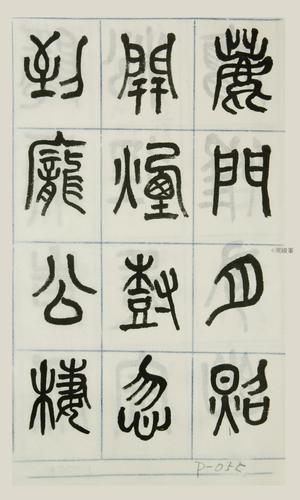 鹿門月照
開煙樹忽
到龐公棲
P-055